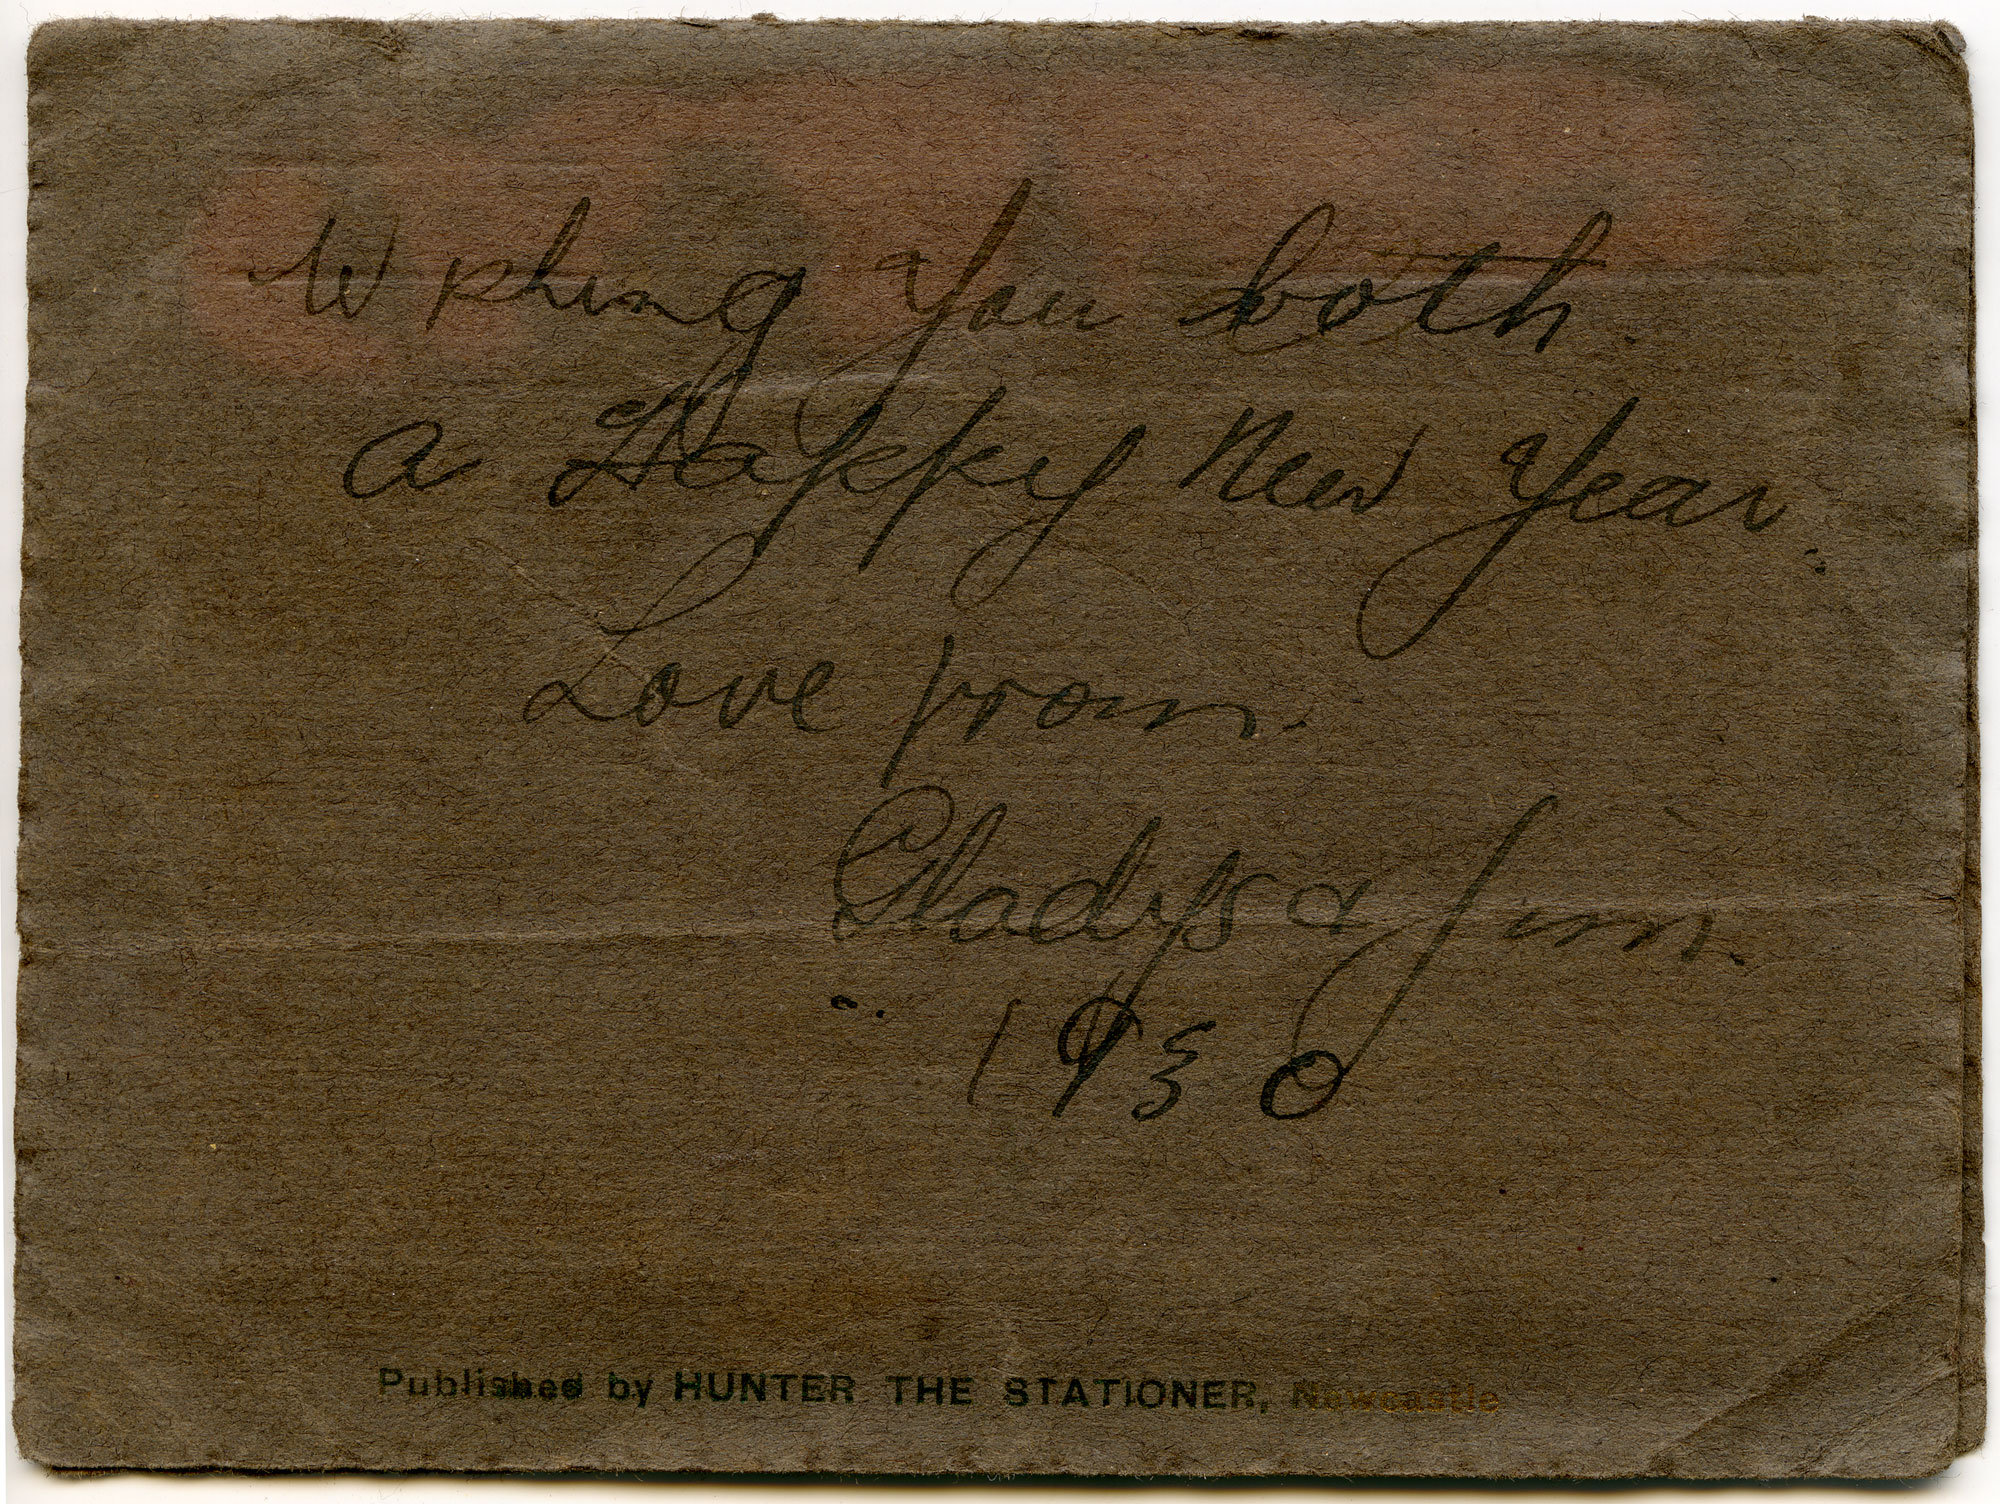 Wishing You both.
a Happy New Year.
Love from.
Gladys & Jim.
1930
Published by HUNTER THE STATIONER, Newcastle